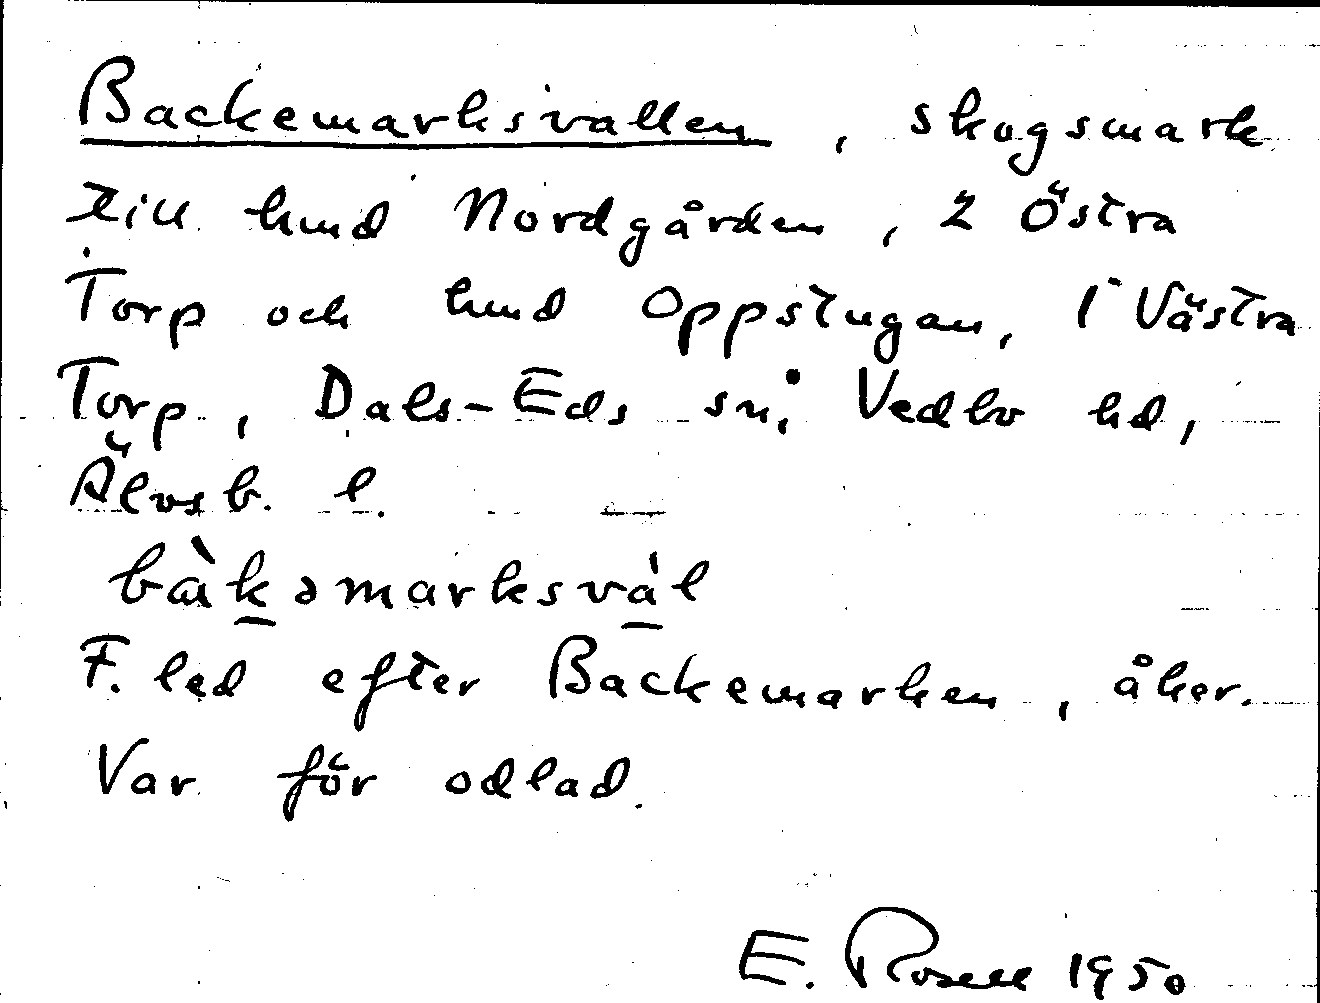 Backemarksvallen, skogsmark
till hmd Nordgården, 2 Östra
Torp och hmd Oppstugan, 1 Västra
Torp, Dals-Eds sn, Vedbo hd,
Älvsb. l.
bàk̲əmarksvàl̲
F. led efter Backemarken, åker.
Var för odlad.
E. Rosell 1950